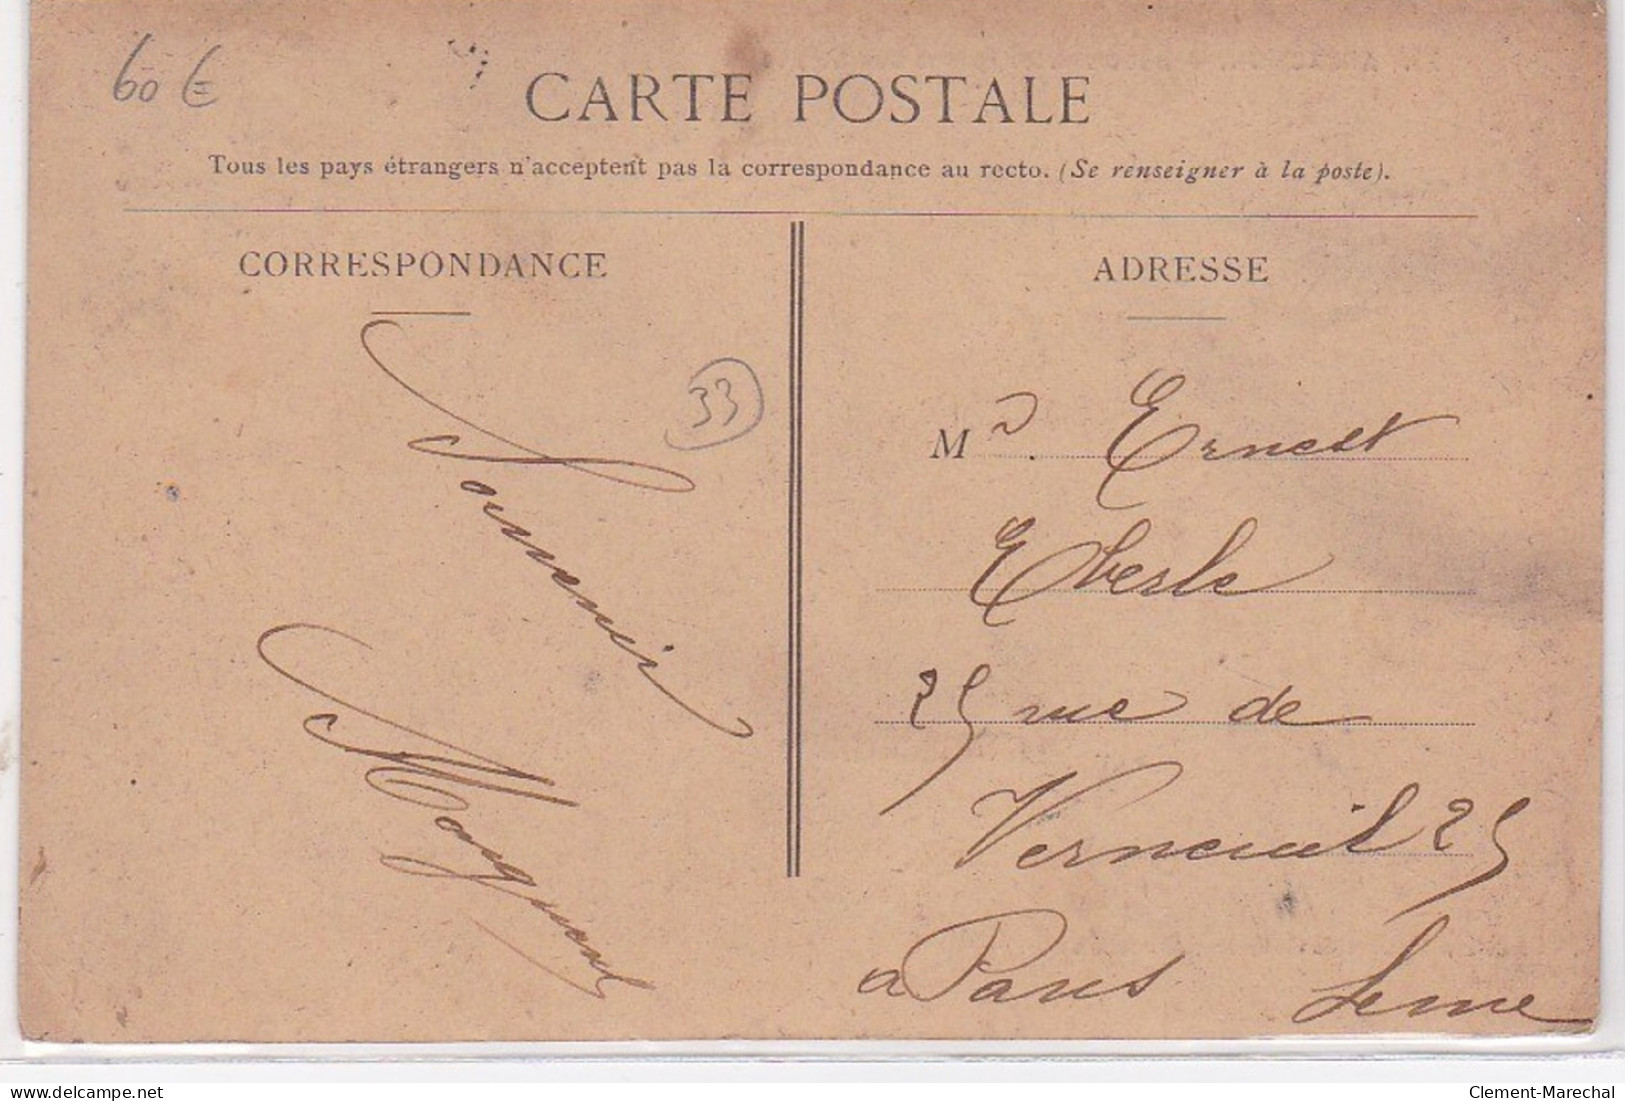 60 €
CARTE POSTALE
Tous les pays étrangers n'acceptent pas la correspondance au recto. (Se renseigner à la poste).
CORRESPONDANCE
33
Souvenir
ADRESSE
Mr. Ernest
Eberle
25 rue de
Verneuil 25
a Paris Seine
delcampe.net
Clement-Marechal